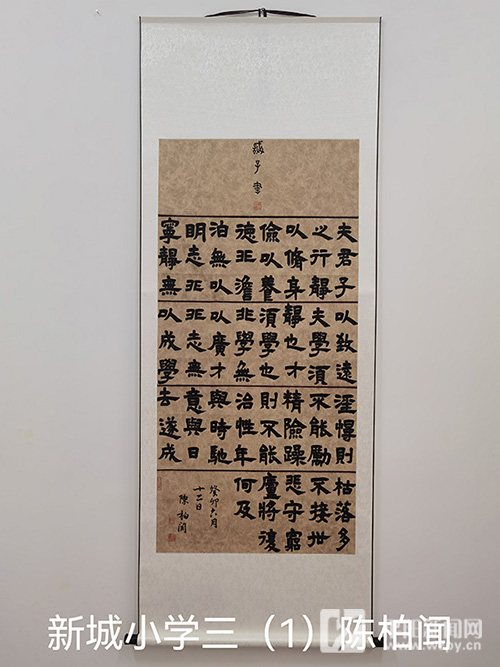 誡子書
夫君子
之行靜
以脩身
儉以養
德非澹
泊無以
明志非
寧靜無
以致遠
夫學須
靜也才
須學也
非學無
以廣才
非志無
以成學
淫慢則
不能勵
精險躁
則不能
治性年
與時馳
意與日
去遂成
枯落多
不接世
悲守窮
廬將復
何及
癸卯六月
十二日
陳柏闻
新城小学三（1）陈柏闻